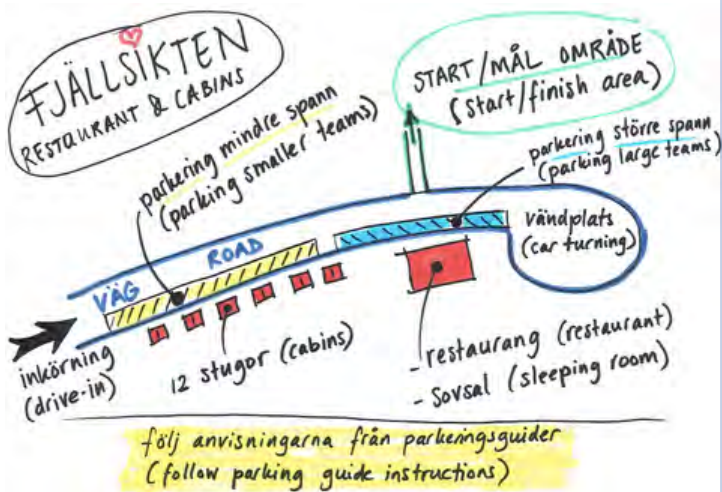 FJÄLLSIKTEN
RESTAURANT & CABINS
START/MÅL OMRÅDE
(start/finish area)
parkering mindre spann
(parking smaller teams)
parkering större spann
(parking large teams)
vändplats
(car turning)
VÄG
ROAD
inkörning
(drive-in)
12 stugor (cabins)
- restaurang (restaurant)
- sovsal (sleeping room)
följ anvisningarna från parkeringsguider
(follow parking guide instructions)